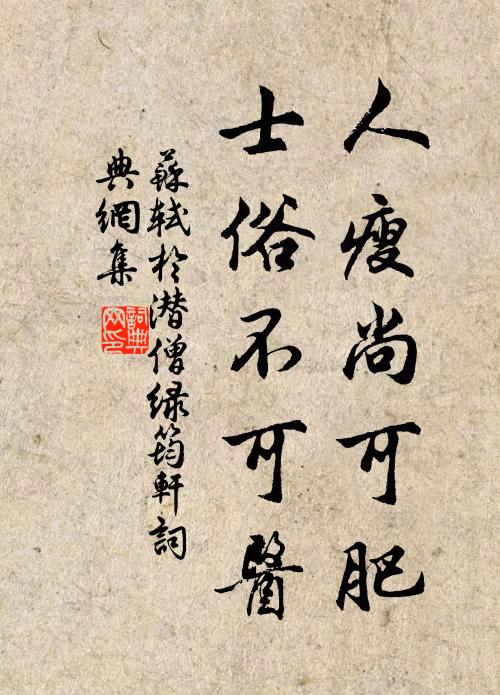 人瘦尚可肥
士俗不可醫
蘇軾於潜僧绿筠軒詞
典網集
詞典
网印